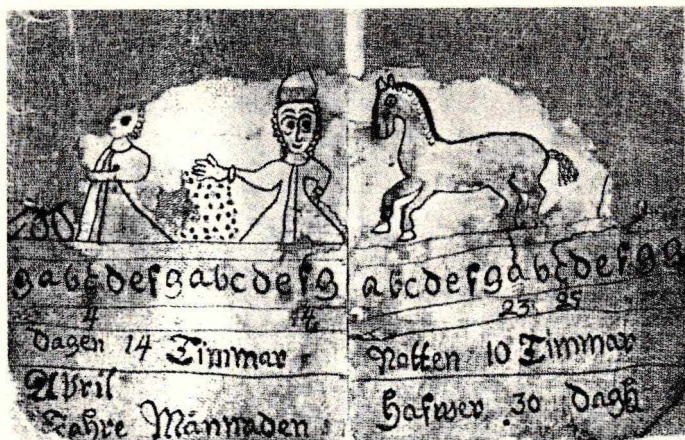 gabcdefgabcdefg
4 14
Dagen 14 Timmar
April
Månnaden
abcdefgabcdefgg
23 25
Natten 10 Timmar
hafwer 30 Dagh